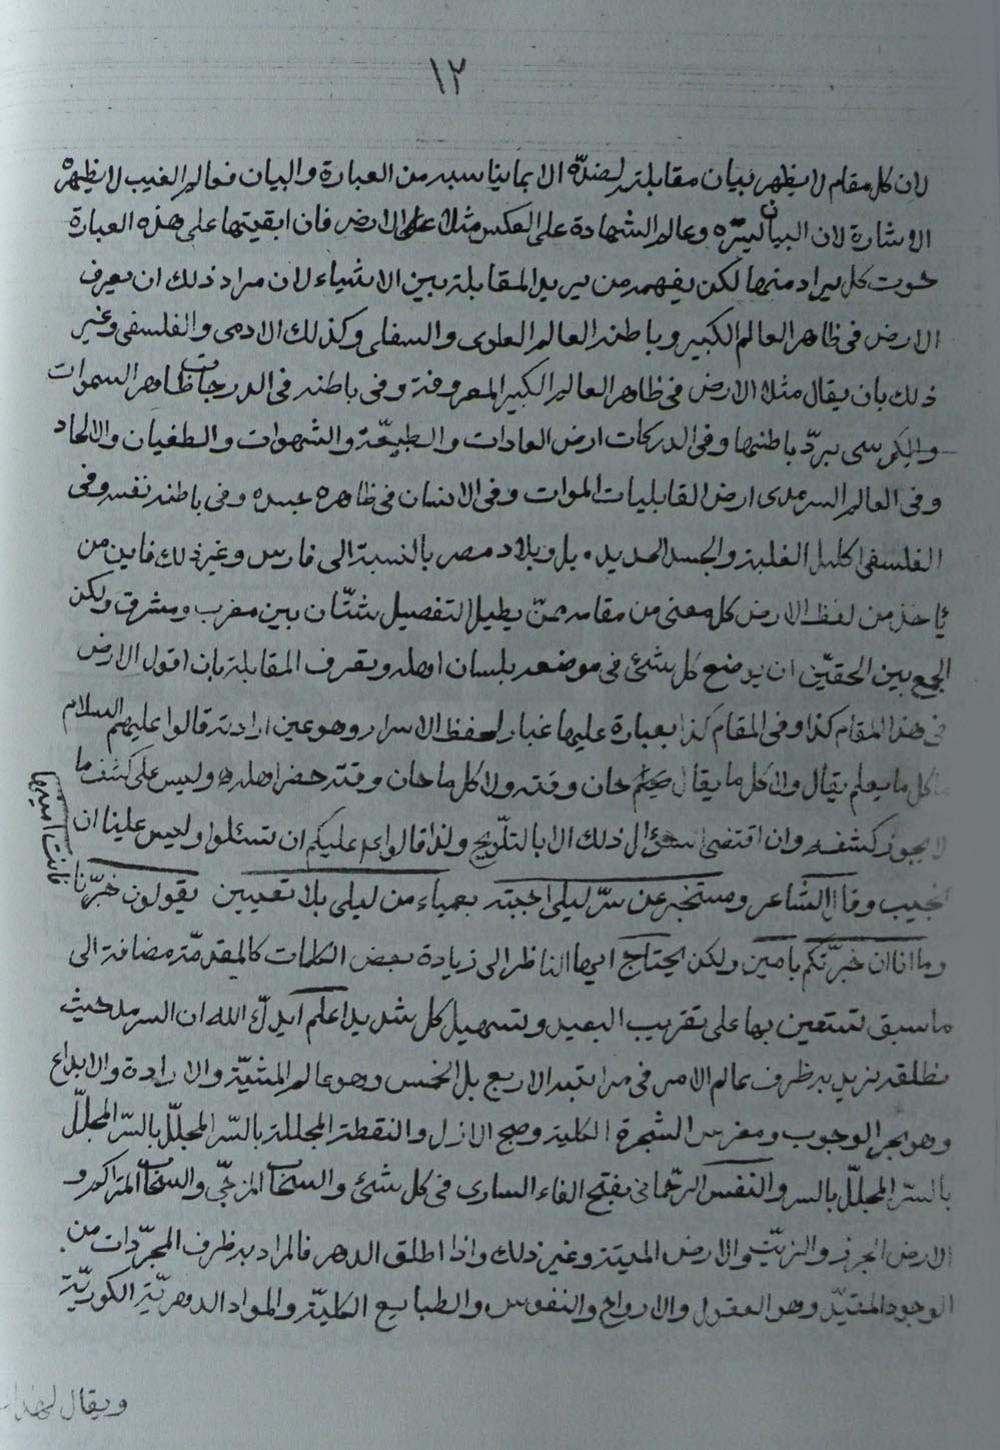 ١٢
لان كل مقام لا يظهر ببيان مقابلته لضدّه الا بما يناسبه من العبارة والبيان فعالم الغيب لا يظهره
الاشارة لان البيان يستره وعالم الشهادة على العكس مثلا على الارض فان ابقيتها على هذه العبارة
حوت كل يراد منها لكن يفهمه من يريد المقابلة بين الاشياء لان مراد ذلك ان يعرف
الارض فى ظاهر العالم الكبير وباطنه العالم العلوى والسفلى وكذلك الادمى والفلسفى وغير
ذلك بان يقال مثلا الارض فى ظاهر العالم الكبير المعروفة وفى باطنه فى الدرجات ظاهر السموات
والكرسى باطنها وفى الدركات ارض العادات والطبيعة والشهوات والطغيان والالحاد
وفى العالم السرمدى ارض القابليات الموات وفى الانسان فى ظاهره جسده وفى باطنه نفسه وفى
الفلسفى اكليل الغلبة والجسد الجديد بل وبلاد مصر بالنسبة الى فارس وغير ذلك فاين من
ياخذ من لفظ الارض كل معنى من مقامه ممن يطيل التفصيل شتّان بين مغرب ومشرق ولكن
الجمع بين الحقين ان يوضع كل شئ فى موضعه بلسان اهله ويعرف المقابلة بان اقول الارض
فى هذا المقام كذا وفى المقام كذا بعبارة عليها غبار لحفظ الاسرار وهو عين ارادته قالوا عليهم السلام
ما كل ما يعلم يقال ولا كل ما يقال حان وقته ولا كل ما حان وقته حضر اهله وليس على كشف ما
لا يجوز كشفه وان اقتضى السؤال ذلك الا بالتلويح ولذا قالوا ع عليكم ان تسئلوا وليس علينا ان
نجيب وقال الشاعر ومستخبر عن سرّ ليلى اجبته بعمياء من ليلى بلا تعيين يقولون خبّرنا
فانت امينها
وما انا ان خبّرتكم بامين ولكن يحتاج ايها الناظر الى زيادة بعض الكلمات كالمقدمة مضافة الى
ما سبق تستعين بها على تقريب البعيد وتسهيل كل شديد اعلم ايدك الله ان السرمد حيث
نطلقه نريد به ظرف عالم الامر فى مراتبه الاربع بل الخمس وهو عالم المشيّة والارادة والابداع
وهو بحر الوجوب ومغرس الشجرة الكلية وصبح الازل والنقطة المجللة بالسّر المجلّل بالسّر المجلّل
بالسّر المجلّل بالسر والنفس الرحمانى بفتح الفاء السارى فى كل شئ والسحاب المزجّى والسحاب المتراكم و
الارض الجرز والزيت والارض الميتة وغير ذلك واذا اطلق الدهر فالمراد به ظرف المجرّدات من
الوجود المقيّد وهو العقول والارواح والنفوس والطبايع الكلية والمواد الدهريّة
ويقال لهذا